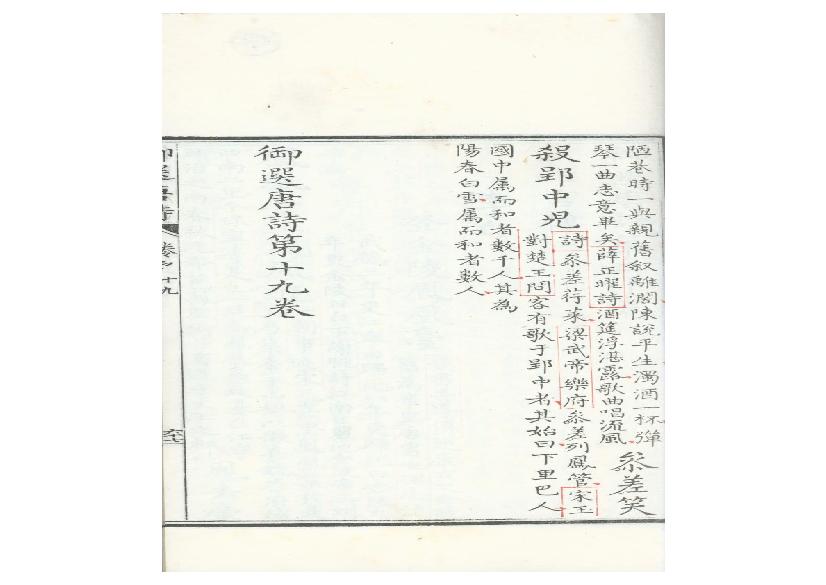 陋巷時一與親舊叙離濶陳說平生濁酒一杯彈
琴一曲志意畢矣薛正曜詩酒筵浮湛露歌曲唱流風
參差笑
殺郢中児
詩參差荇菜梁武帝樂府參差列鳳管宋玉
對楚王問客有歌于郢中者其始曰下里巴人
國中属而和者數千人其為
陽春白雪属而和者數人
御選唐詩第十九卷
御選唐詩
卷之十九